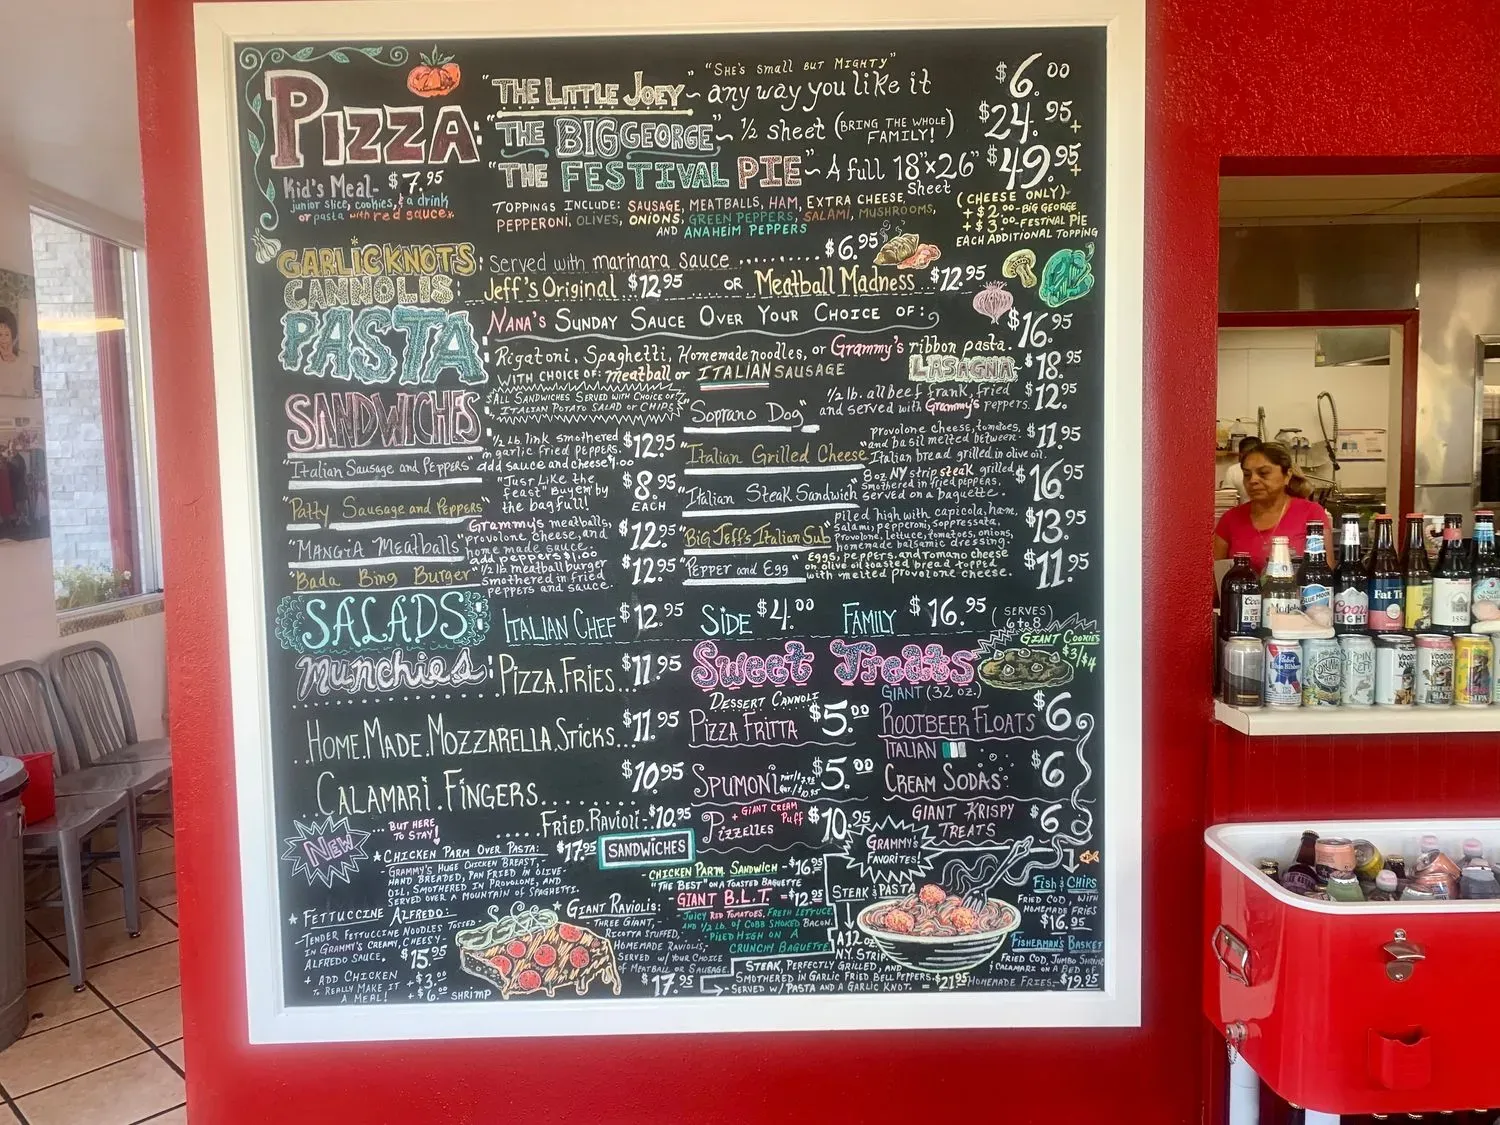 PIZZA:
"THE LITTLE JOEY" ~ "SHE'S SMALL BUT MIGHTY" any way you like it $6.00
"THE BIG GEORGE" ~ 1/2 sheet (BRING THE WHOLE FAMILY!) $24.95+
"THE FESTIVAL PIE ~ A full 18"x26" Sheet $49.95+
Kid's Meal- $7.95
junior slice, cookies, & a drink
or pasta with red sauce.
TOPPINGS INCLUDE: SAUSAGE, MEATBALLS, HAM, EXTRA CHEESE,
PEPPERONI, OLIVES, ONIONS, GREEN PEPPERS, SALAMI, MUSHROOMS,
AND ANAHEIM PEPPERS
(CHEESE ONLY)
+$2.00-BIG GEORGE
+$3.00-FESTIVAL PIE
EACH ADDITIONAL TOPPING
GARLIC KNOTS: Served with marinara sauce ......... $6.95
CANNOLIS: Jeff's Original $12.95 OR Meatball Madness... $12.95
PASTA: NANA'S SUNDAY SAUCE OVER YOUR CHOICE OF: $16.95
Rigatoni, Spaghetti, Homemade noodles, or Grammy's ribbon pasta.
WITH CHOICE OF: meatball or ITALIAN SAUSAGE
LASAGNA- $18.95
SANDWICHES
ALL SANDWICHES SERVED WITH CHOICE OF
ITALIAN POTATO SALAD or CHIPS
"Italian Sausage and Peppers"
1/2 lb. link smothered
in garlic fried peppers.
add sauce and cheese $1.00
$12.95
"Patty Sausage and Peppers"
"Just Like the
feast" Buy em by
the bagfull!
$8.95 EACH
"MANGIA Meatballs"
Grammy's meatballs,
provolone cheese, and
home made sauce.
add peppers $1.00
$12.95
"Bada Bing Burger"
1/2 lb meatball burger
smothered in fried
peppers and sauce.
$12.95
"Soprano Dog"
1/2 lb. all beef frank, fried
and served with Grammy's peppers.
$12.95
"Italian Grilled Cheese"
provolone cheese, tomatoes,
and basil melted between
Italian bread grilled in olive oil.
$11.95
"Italian Steak Sandwich"
8oz NY strip steak grilled
Smothered in fried peppers,
served on a baguette.
$16.95
"BIG JEFF'S Italian Sub"
piled high with capicola, ham,
salami, pepperoni, soppressata,
Provolone, lettuce, tomatoes, onions,
homemade balsamic dressing.
$13.95
"PEPPER and EGG"
Eggs, peppers, and romano cheese
on olive oil toasted bread topped
with melted provolone cheese.
$11.95
SALADS: ITALIAN CHEF $12.95 SIDE $4.00 FAMILY $16.95 (SERVES 6 to 8)
munchies: PIZZA.FRIES... $11.95
HOME.MADE.MOZZARELLA.STICKS... $11.95
CALAMARI.FINGERS........ $10.95
.....FRIED.RAVIOLI- $10.95
Sweet Treats
GIANT COOKIES
$3/$4
DESSERT CANNOLI
PIZZA FRITTA $5.00
SPUMONI $5.00
PIZZELLES + GIANT CREAM PUFF $10.95
GIANT (32 OZ.)
ROOTBEER FLOATS $6
ITALIAN
CREAM SODAS $6
GIANT KRISPY
TREATS $6
NEW
...BUT HERE
TO STAY!
★CHICKEN PARM OVER PASTA: $17.95
- GRAMMY'S HUGE CHICKEN BREAST,-
HAND BREADED, PAN FRIED IN OLIVE
OIL, SMOTHERED IN PROVOLONE, AND
SERVED OVER A MOUNTAIN OF SPAGHETTI.
★ FETTUCCINE ALFREDO:
- TENDER FETTUCCINE NOODLES TOSSED
IN GRAMMY'S CREAMY, CHEESY-
ALFREDO SAUCE. $15.95
+ ADD CHICKEN +$3.00
TO REALLY MAKE IT
A MEAL! +$6.00 SHRIMP
SANDWICHES
- CHICKEN PARM. SANDWICH - $16.95
"THE BEST" ON A TOASTED BAGUETTE
- GIANT B.L.T. = $12.95
- JUICY RED TOMATOES, FRESH LETTUCE,
AND 1/2 LB. OF COBB SMOKED BACON
- PILED HIGH ON A
CRUNCHY BAGUETTE
★GIANT RAVIOLIS:
- THREE GIANT,
RICOTTA STUFFED,
HOMEMADE RAVIOLIS,
SERVED w/ YOUR CHOICE
OF MEATBALL OR SAUSAGE.
$17.95
GRAMMY'S
FAVORITES!
STEAK & PASTA
A 12 OZ
N.Y. STRIP
STEAK, PERFECTLY GRILLED, AND
SMOTHERED IN GARLIC FRIED BELL PEPPERS.
- SERVED W/ PASTA AND A GARLIC KNOT. = $21.95
FISH & CHIPS
FRIED COD, WITH
HOMEMADE FRIES
$16.95
FISHERMAN'S BASKET
FRIED COD, JUMBO SHRIMP
& CALAMARI ON A BED OF
HOMEMADE FRIES- $19.25
Coors
LIGHT
Modelo
BLUE MOON
Fat Ti
Pabst
Blue Ribbon
VOODOO